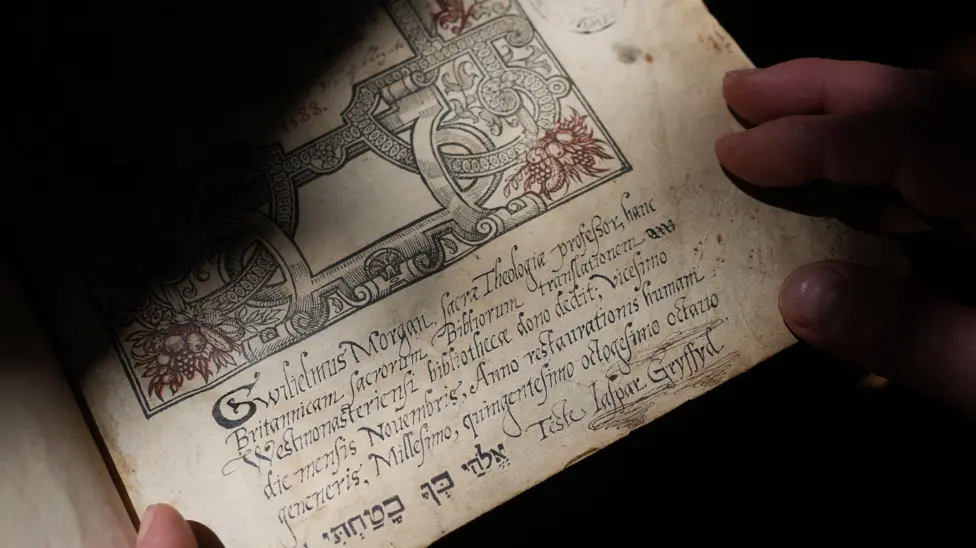 1588.
Gwlielmus Morgan, sacræ Theologiæ profeßor, hanc
Britannicam sacrorum Bibliorum translationem
Westmonasteriensi bibliothecæ dono dedit, vicesimo
die mensis Novembris, Anno restaurationis humani
geneneris, Millesimo, quingentesimo octogesimo octavo
Teste Iaspar Gryffyd.
אֱלֹהַי בְּךָ בָּטַחְתִּי